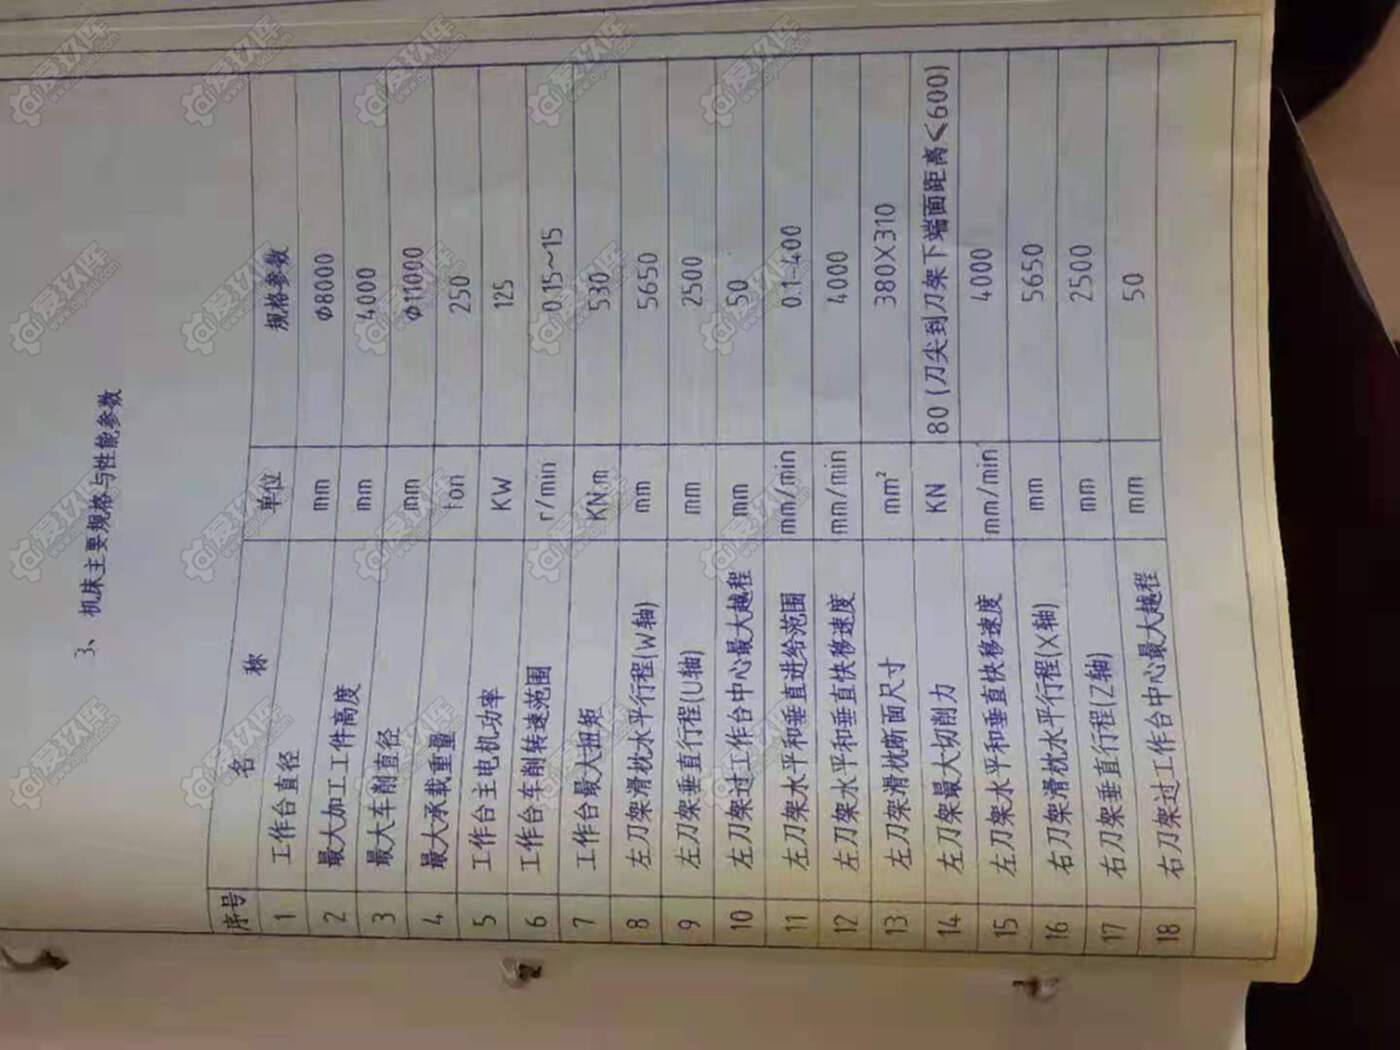 3、机床主要规格与性能参数
序号 名称 单位 规格参数
1 工作台直径 mm Φ8000
2 最大加工工件高度 mm 4000
3 最大车削直径 mm Φ11000
4 最大承载重量 ton 250
5 工作台主电机功率 KW 125
6 工作台车削转速范围 r/min 0.15~15
7 工作台最大扭矩 KN.m 530
8 左刀架滑枕水平行程(W轴) mm 5650
9 左刀架垂直行程(U轴) mm 2500
10 左刀架过工作台中心最大越程 mm 50
11 左刀架水平和垂直进给范围 mm/min 0.1-400
12 左刀架水平和垂直快移速度 mm/min 4000
13 左刀架滑枕断面尺寸 mm² 380X310
14 左刀架最大切削力 KN 80(刀尖到刀架下端面距离≤600)
15 左刀架水平和垂直快移速度 mm/min 4000
16 右刀架滑枕水平行程(X轴) mm 5650
17 右刀架垂直行程(Z轴) mm 2500
18 右刀架过工作台中心最大越程 mm 50